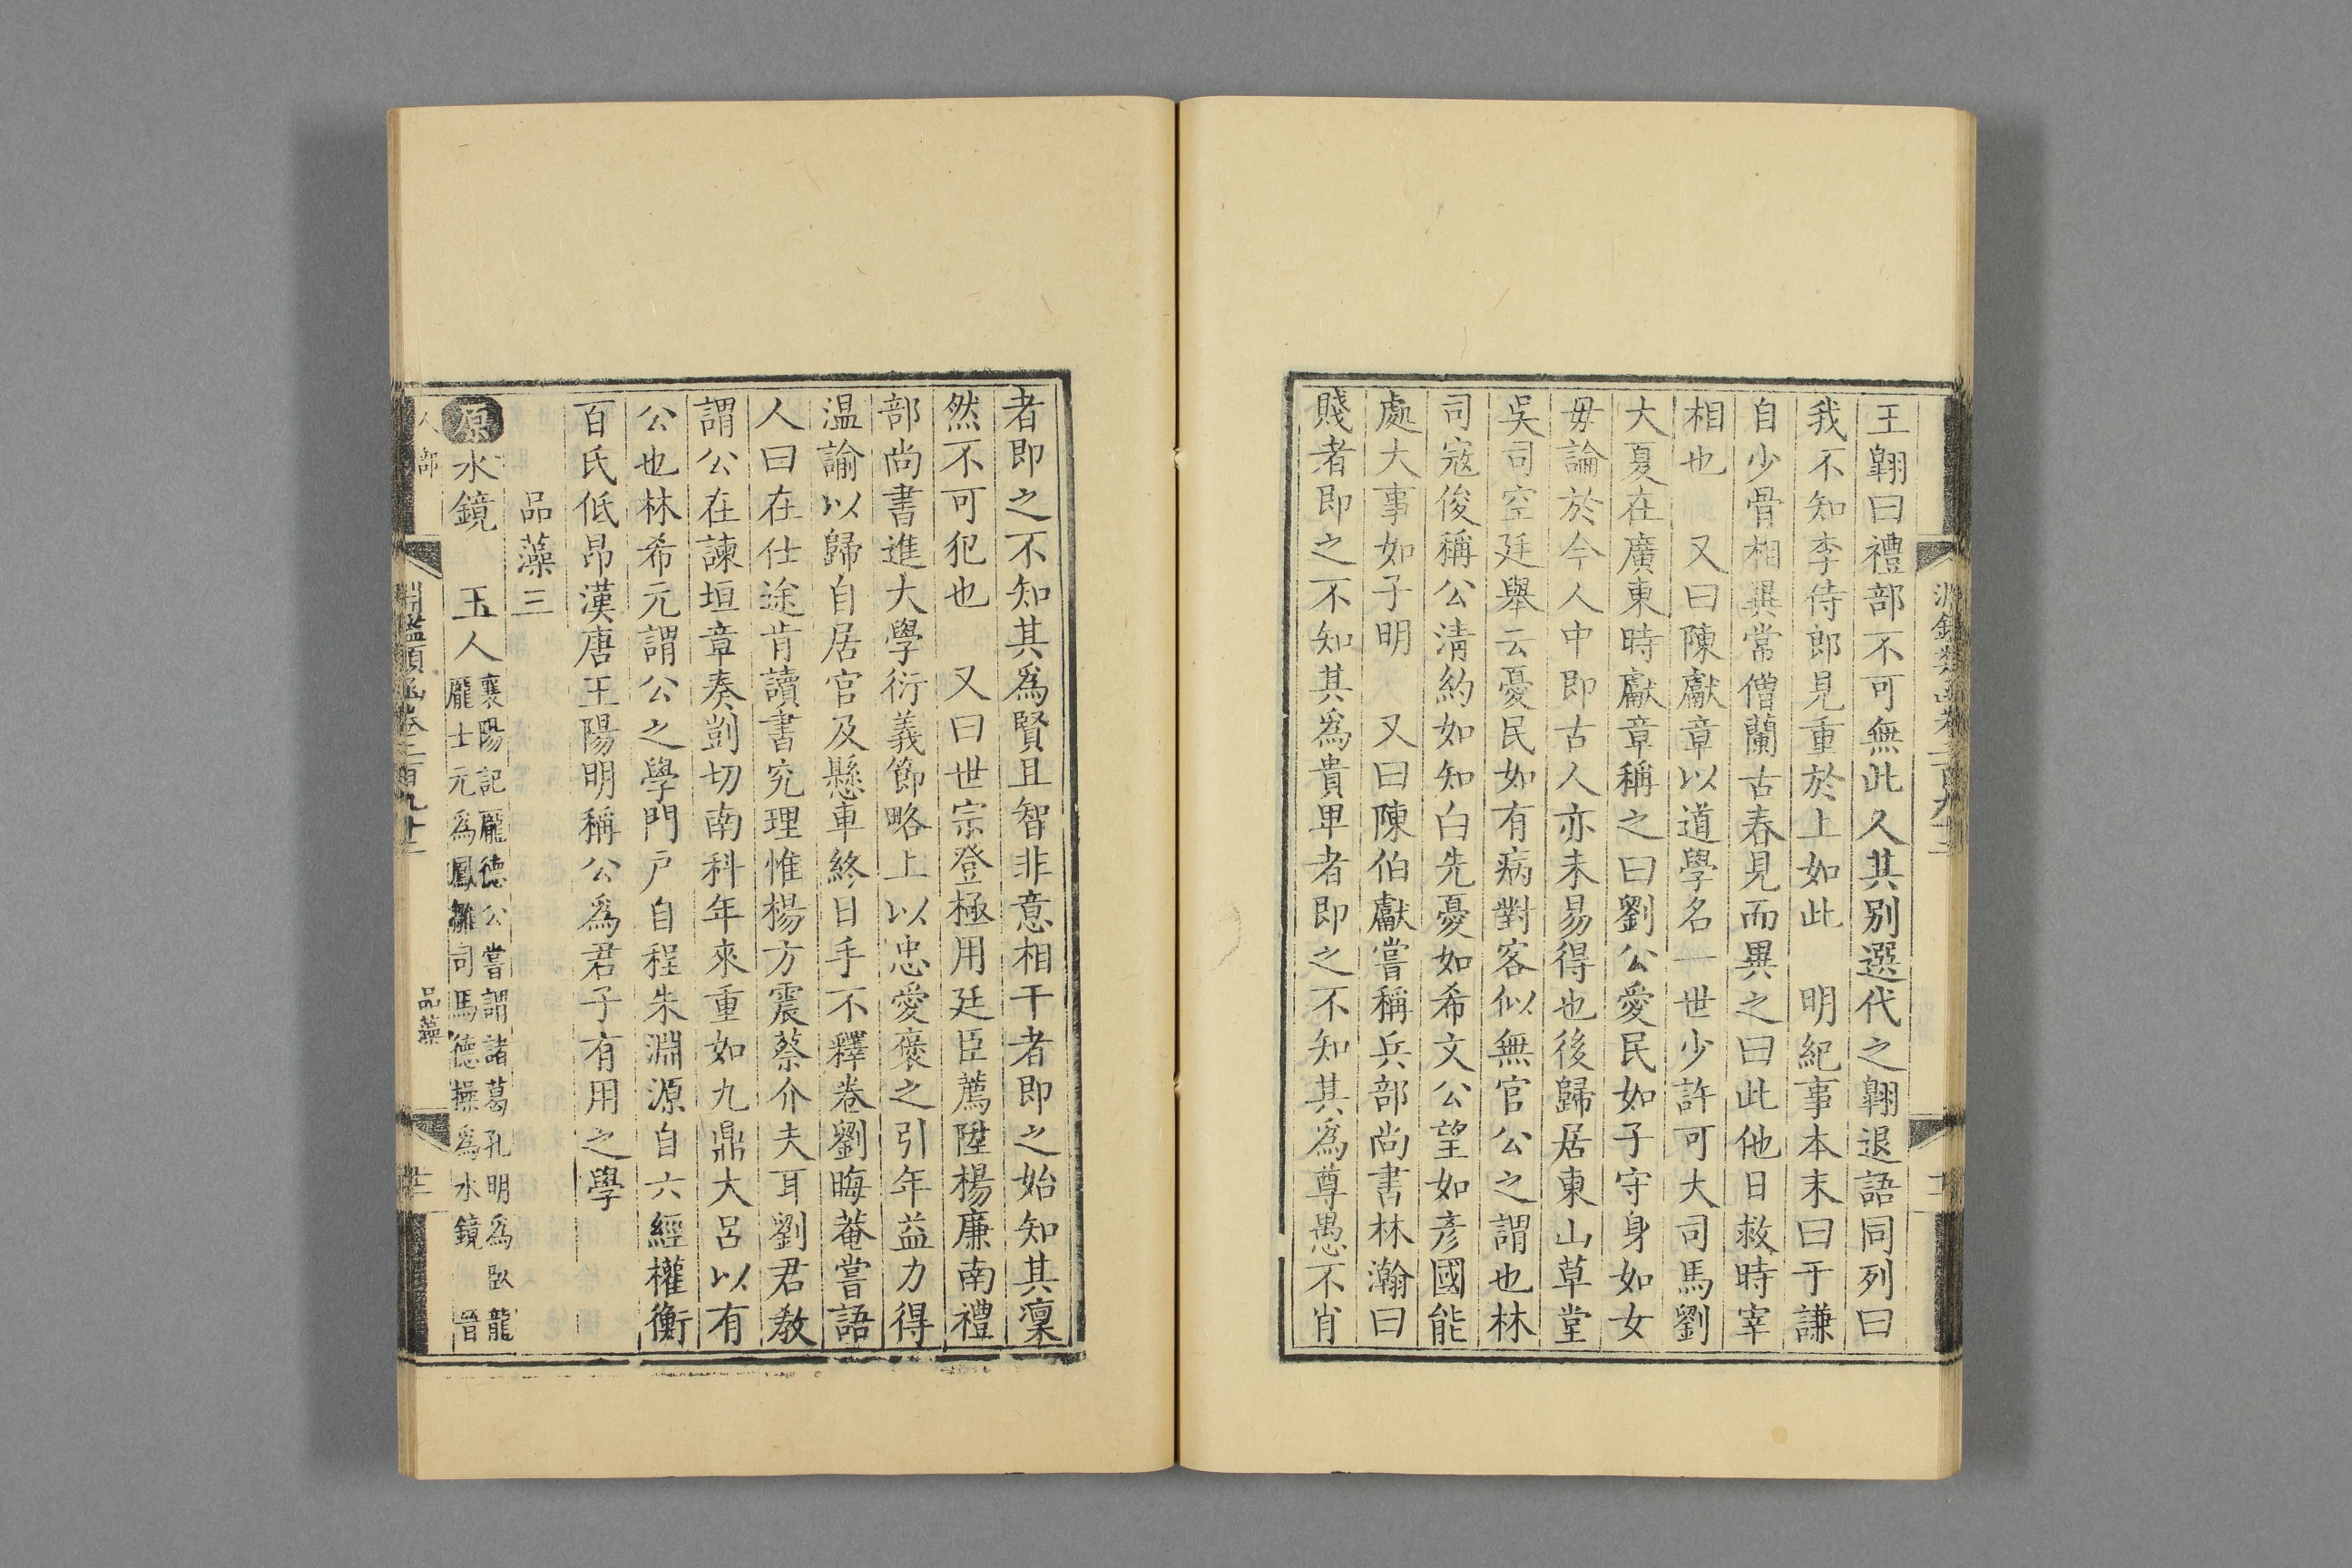 王翱曰禮部不可無此久其别選代之翱退語同列曰
我不知李侍郎見重於上如此　明紀事本末曰于謙
自少骨相異常僧蘭古春見而異之曰此他日救時宰
相也　又曰陳獻章以道學名一世少許可大司馬劉
大夏在廣東時獻章稱之曰劉公愛民如子守身如女
毋論於今人中即古人亦未易得也後歸居東山草堂
吳司空廷舉云憂民如有病對客似無官公之謂也林
司寇俊稱公清約如知白先憂如希文公望如彥國能
處大事如子明　又曰陳伯獻嘗稱兵部尚書林瀚曰
賤者即之不知其爲貴卑者即之不知其爲尊愚不肖
者即之不知其爲賢且智非意相干者即之始知其凜
然不可犯也　又曰世宗登極用廷臣薦陞楊廉南禮
部尚書進大學衍義節略上以忠愛褒之引年益力得
温諭以歸自居官及懸車終日手不釋卷劉晦菴嘗語
人曰在仕途肯讀書究理惟楊方震蔡介夫耳劉君敎
謂公在諫垣章奏剴切南科年來重如九鼎大呂以有
公也林希元謂公之學門戸自程朱淵源自六經權衡
百氏低昂漢唐王陽明稱公爲君子有用之學
品藻三
原水鏡　玉人襄陽記龐德公嘗謂諸葛孔明爲臥龍
龐士元爲鳳雛司馬德操爲水鏡　晉
人部
淵鑑類函卷二百九十三
品藻